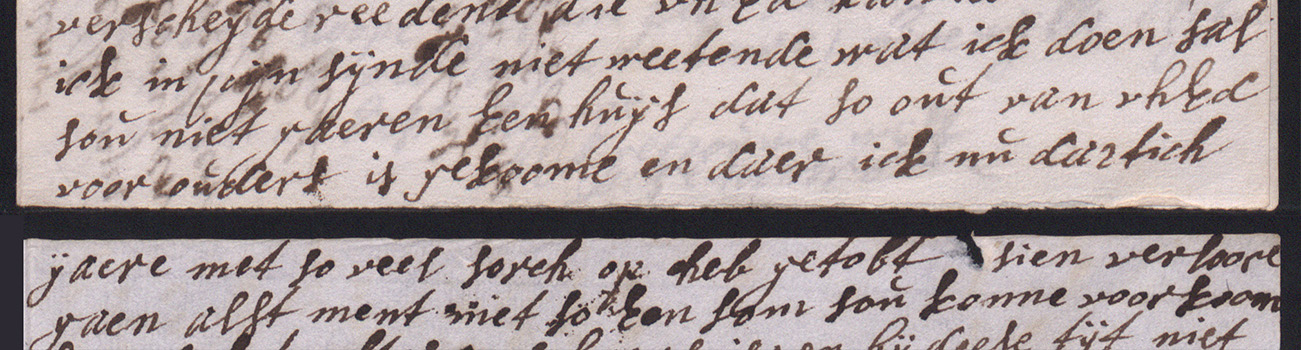 verscheyde reedene die
ick in pijn sijnde niet weetende wat ick doen sal
sou niet gaeren een huijs dat so out van uhEd
voor ouders is gekoome en daer ick nu dartich
ijaere met so veel sorch op heb getobt sien verloore
gaen alst ment met so een som sou konne voorkoom
tijt niet